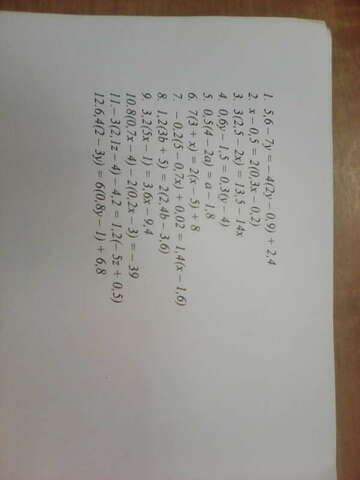 1. 5,6 – 7y = –4(2y – 0,9) + 2,4
2. x – 0,5 = 2(0,3x – 0,2)
3. 3(2,5 – 2x) = 13,5 – 14x
4. 0,6y – 1,5 = 0,3(y – 4)
5. 0,5(4 – 2a) = a – 1,8
6. 7(3 + x) = 2(x – 5) + 8
7. – 0,2(5 – 0,7x) + 0,02 = 1,4(x – 1,6)
8. 1,2(3b + 5) = 2(2,4b – 3,6)
9. 3,2(5x – 1) = 3,6x – 9,4
10.8(0,7x – 4) – 2(0,2x – 3) = – 39
11.–3(2,1z – 4) – 4,2 = 1,2(–5z + 0,5)
12.6,4(2 – 3y) = 6(0,8y – 1) + 6,8